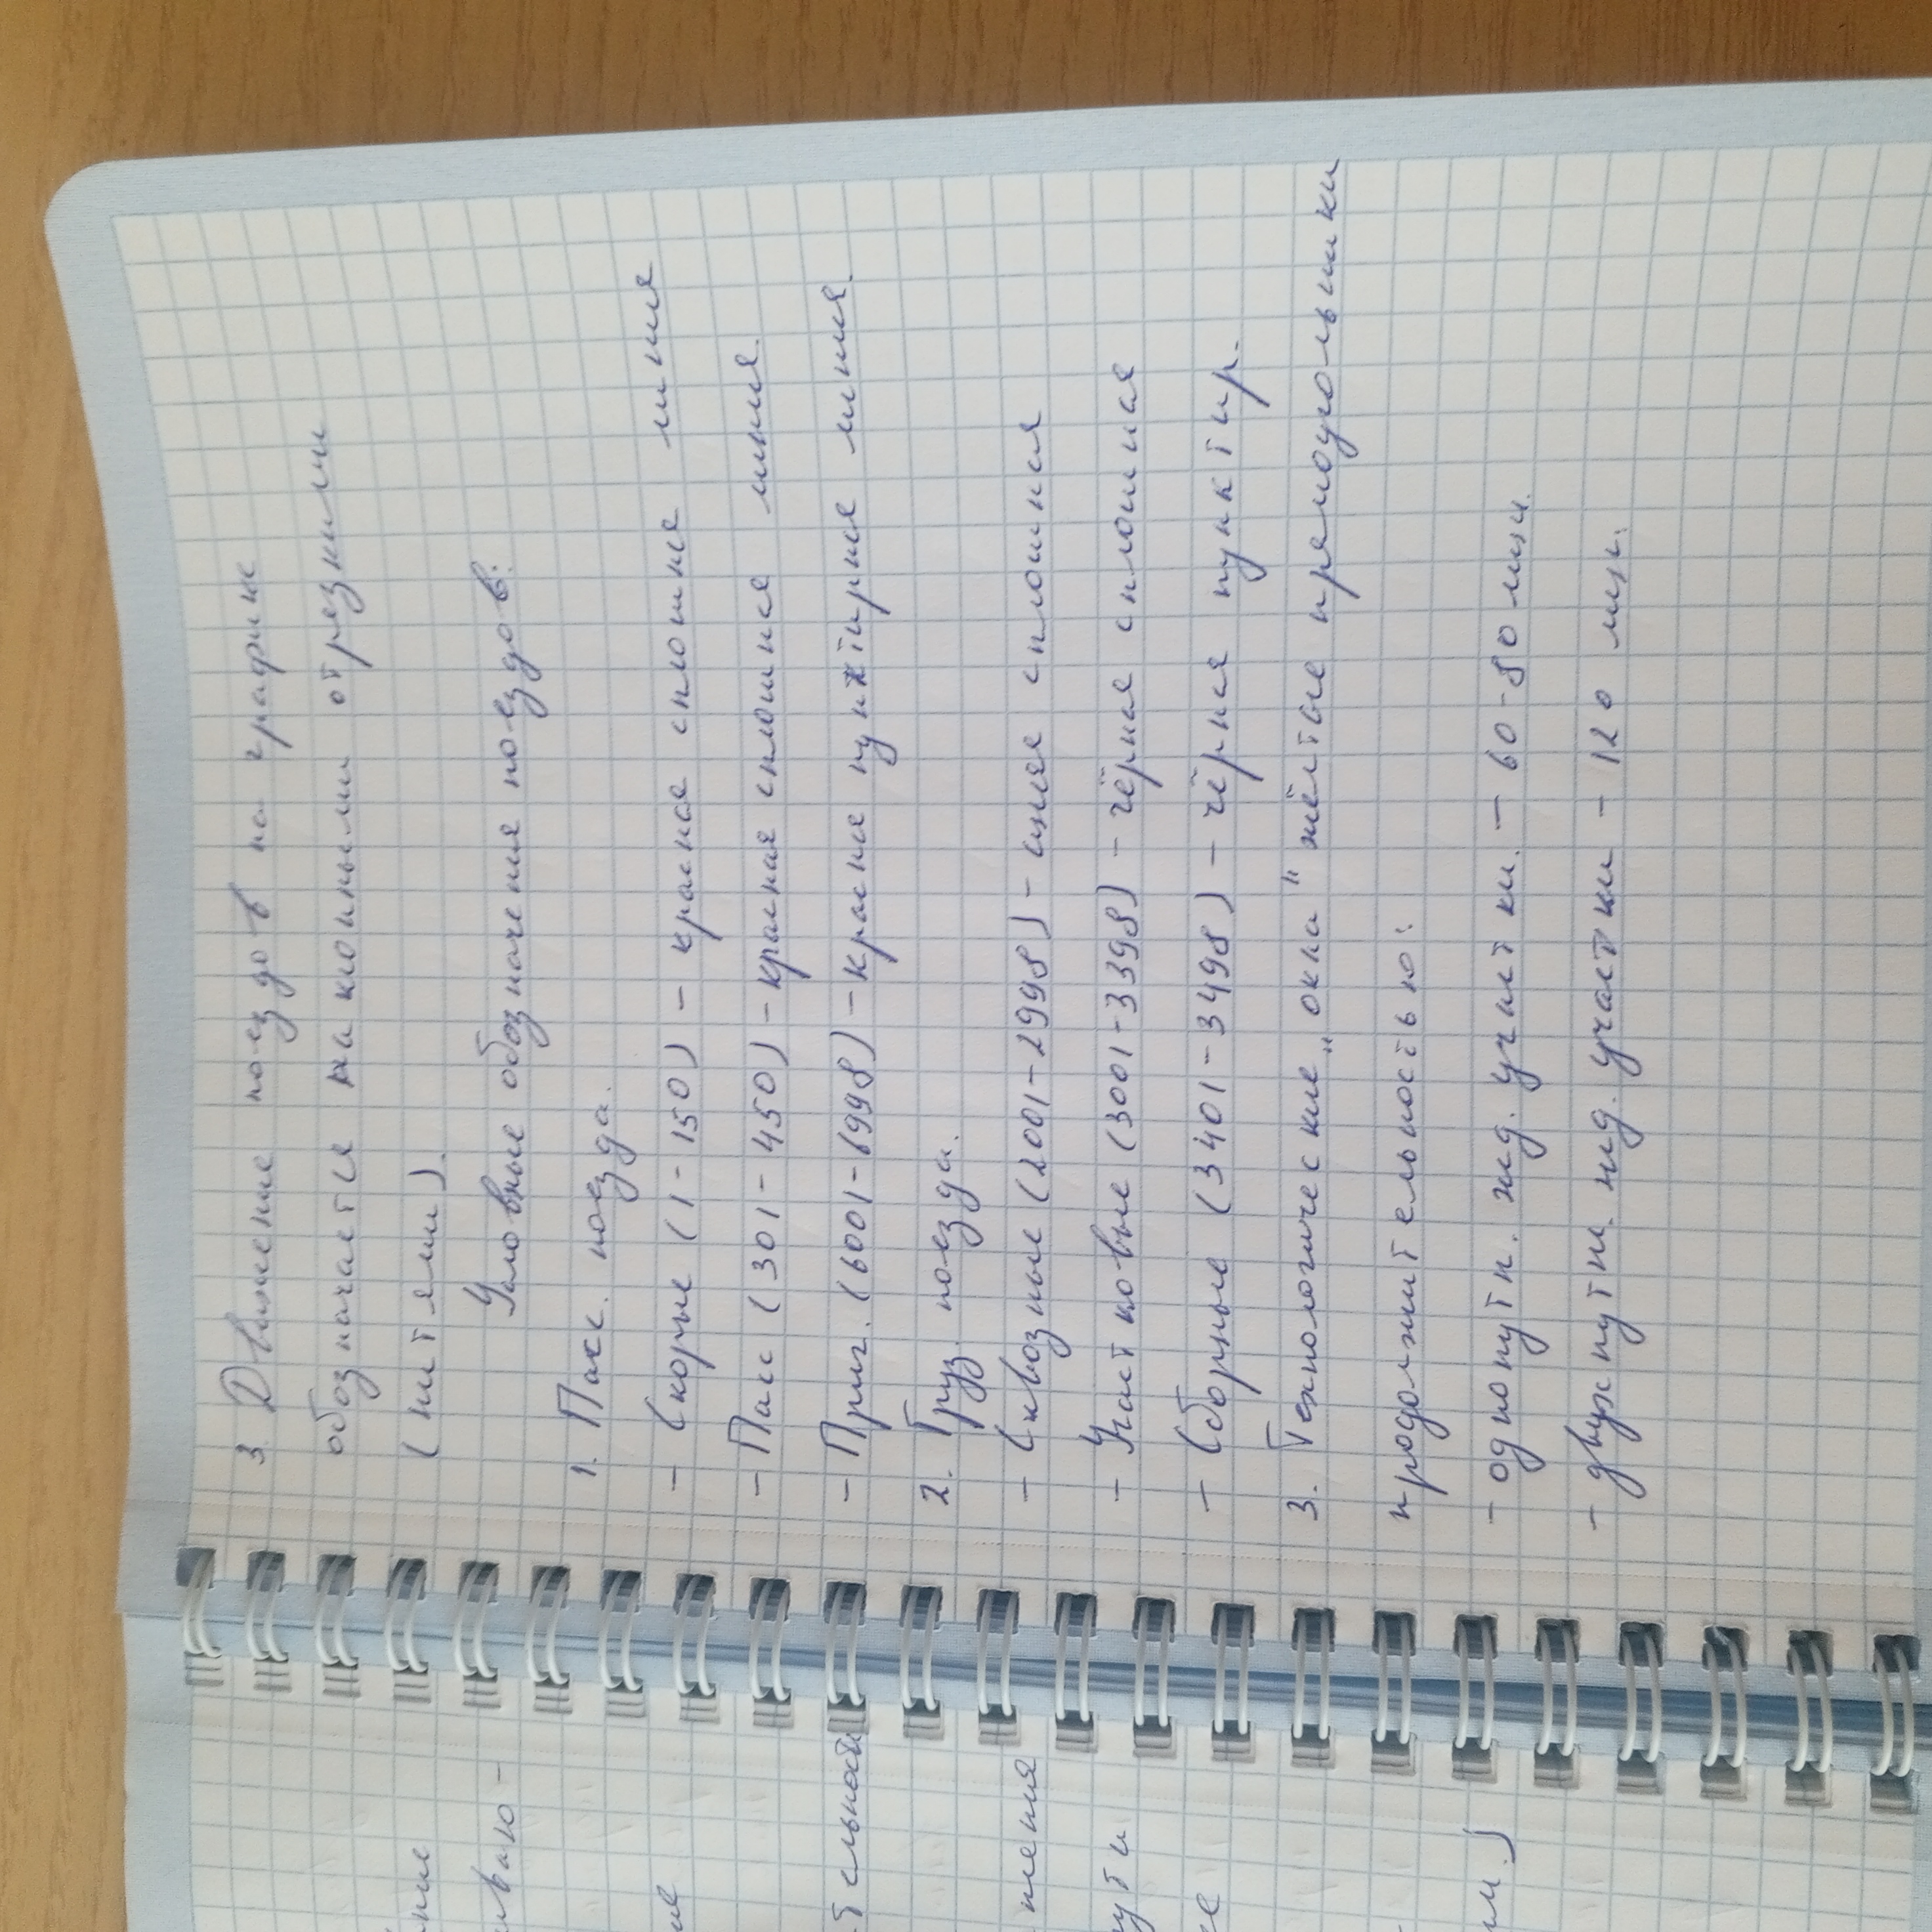 3. Движение поездов на графике
обозначается наклонными отрезками
(нитями).
Условные обозначения поездов:
1. Пасс. поезда.
- Скорые (1-150) - красная сплошная линия
- Пасс (301-450) - красная сплошная линия.
- Приг. (6001-6998) - красная пунктирная линия.
2. Груз. поезда.
- Сквозные (2001-2998) - синяя сплошная
- Участковые (3001-3398) - чёрная сплошная
- Сборные (3401-3498) - чёрная пунктир.
3. Технологические „окна" жёлтые прямоугольники
продолжительностью:
- однопутн. жд. участки. - 60-80 мин.
- двухпутн. жд. участки - 120 мин.